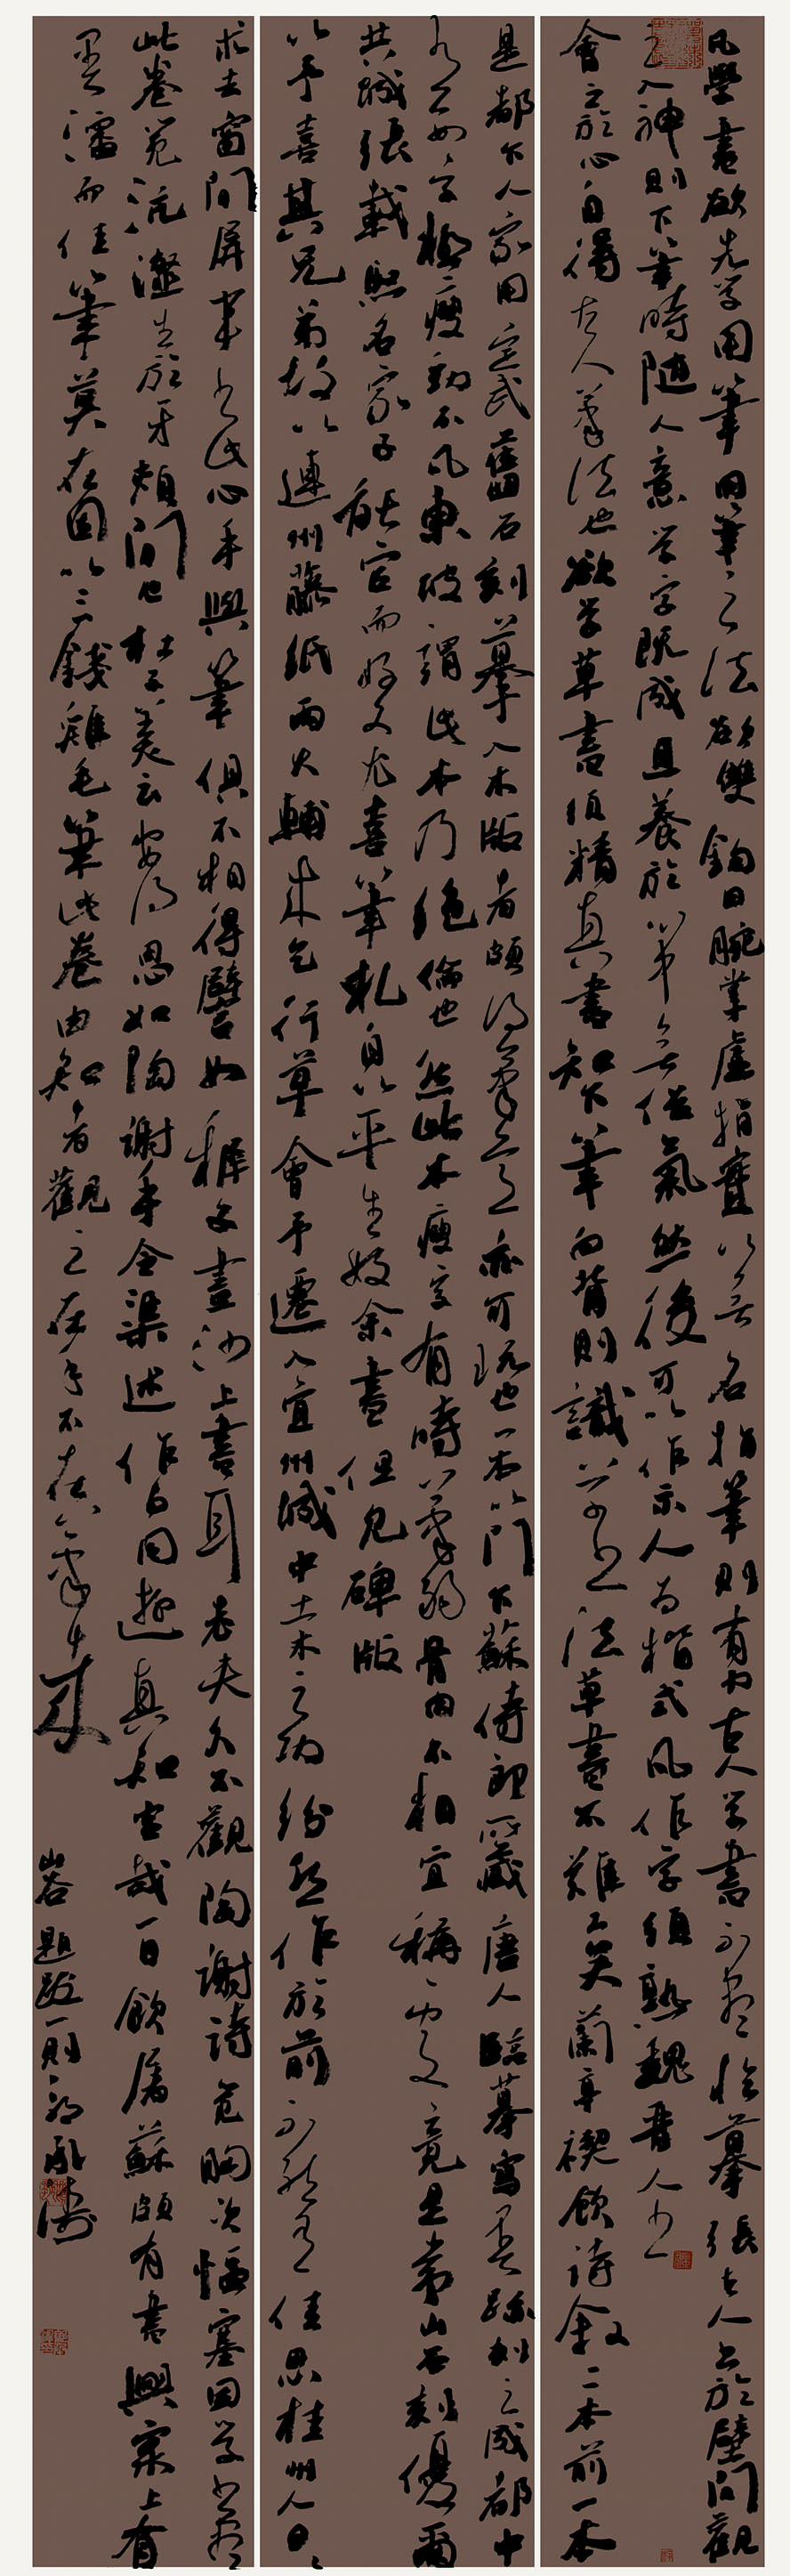 凡學書欲先学用筆用筆之法欲雙鉤回腕掌虛指實以无名指筆則有力古人学書不盡臨摹張古人書於壁間觀
之入神則下筆時隨人意学字既成且養於心中无俗氣然後可以作示人為楷式凡作字須熟魏晉人書
會之於心自得古人筆法也欲学草書須精真書知下筆向背則識草書法草書不難工矣蘭亭禊飲詩叙二本前一本
是都下人家用定武舊石刻摹入木版者頗得筆意亦可玩也一本以門下蘇侍郎所藏唐人臨摹寫墨跡刻之成都中
者數字極瘦勁不凡東坡謂此本乃絕倫也然此本瘦字有時筆弱骨肉不相宜稱處竟是常山石刻優爾
共城張載熙名家子能官而好文尤喜筆札自以平生好余書但見碑版
以予喜其兄弟故以連州藤紙兩大輔來乞行草會予遷入宜州城中土木之功紛然作於前不能有佳思桂州人日日
求去窗間屏筆書此心手與筆俱不相得譬如稚子畫沙上書耳老夫久不觀陶謝詩覺胸次愊塞因学書盡
此卷覺沆瀣生於牙頰間也杜子美云安得思如陶謝手令渠述作与同遊真知言哉一日飲屠蘇頗有書興案上有
墨瀋而佳筆莫在因以三錢雞毛筆此卷由知者觀之在手不在筆來
山谷題跋一則